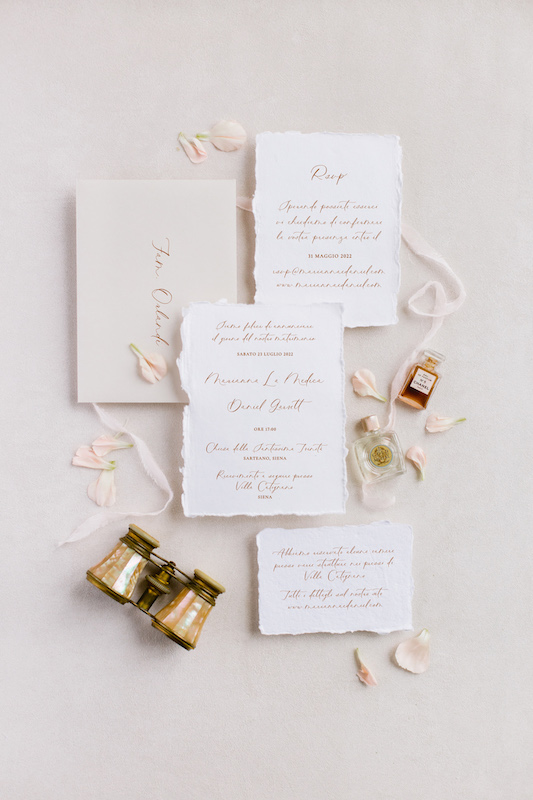 Rsvp
Sperando possiate esserci
vi chiediamo di confermare
la vostra presenza entro il
31 MAGGIO 2022
rsvp@mariannaedaniel.com
www.mariannaedaniel.com
Fam. Orlandi
Siamo felici di annunciare
il giorno del nostro matrimonio
SABATO 23 LUGLIO 2022
Marianna La Medica
Daniel
ORE 17:00
Chiesa della Santissima Trinità
SARTEANO, SIENA
Riceveremo a seguire presso
Villa Cetignano
SIENA
CHANEL
Abbiamo riservato alcune camere
presso varie strutture nei pressi di
Villa Cetignano
Tutti i dettagli sul nostro sito
www.mariannaedaniel.com